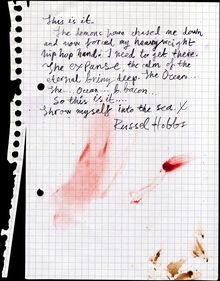 This is it.
The demons have chased me down
and now forced my heavyweight
hip hop hand. I need to get there.
The expanse, the calm of the
eternal briny deep. The Ocean...
The... Ocean... b..bacon...
So this is it....
Throw myself into the sea. X
Russel Hobbs